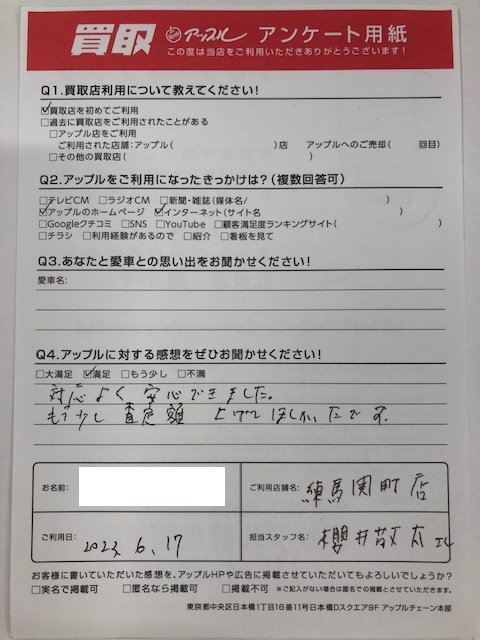 買取 アップル アンケート用紙
この度は当店をご利用いただきありがとうございます!
Q1.買取店利用について教えてください!
☑買取店を初めてご利用
□過去に買取店をご利用されたことがある
□アップル店をご利用
ご利用された店舗:アップル( )店 アップルへのご売却( 回目)
□その他の買取店( )
Q2.アップルをご利用になったきっかけは?(複数回答可)
□テレビCM □ラジオCM □新聞・雑誌(媒体名/ )
☑アップルのホームページ ☑インターネット(サイト名 )
□Googleクチコミ □SNS □YouTube □顧客満足度ランキングサイト( )
□チラシ □利用経験があるので □紹介 □看板を見て
Q3.あなたと愛車との思い出をお聞かせください!
愛車名:
Q4.アップルに対する感想をぜひお聞かせください!
□大満足 ☑満足 □もう少し □不満
対応よく安心できました。
もう少し査定額上げてほしかったです。
お名前:
ご利用店舗名: 練馬関町店
ご利用日: 2023.6.17
担当スタッフ名: 櫻井敬太
お客様に書いていただいた感想を、アップルHPや広告に掲載させていただいてもよろしいでしょうか?
□実名で掲載可 □匿名なら掲載可 □掲載不可 ※ご記入がない場合は匿名での掲載とさせていただきます。
東京都中央区日本橋1丁目16番11号日本橋Dスクエア9F アップルチェーン本部